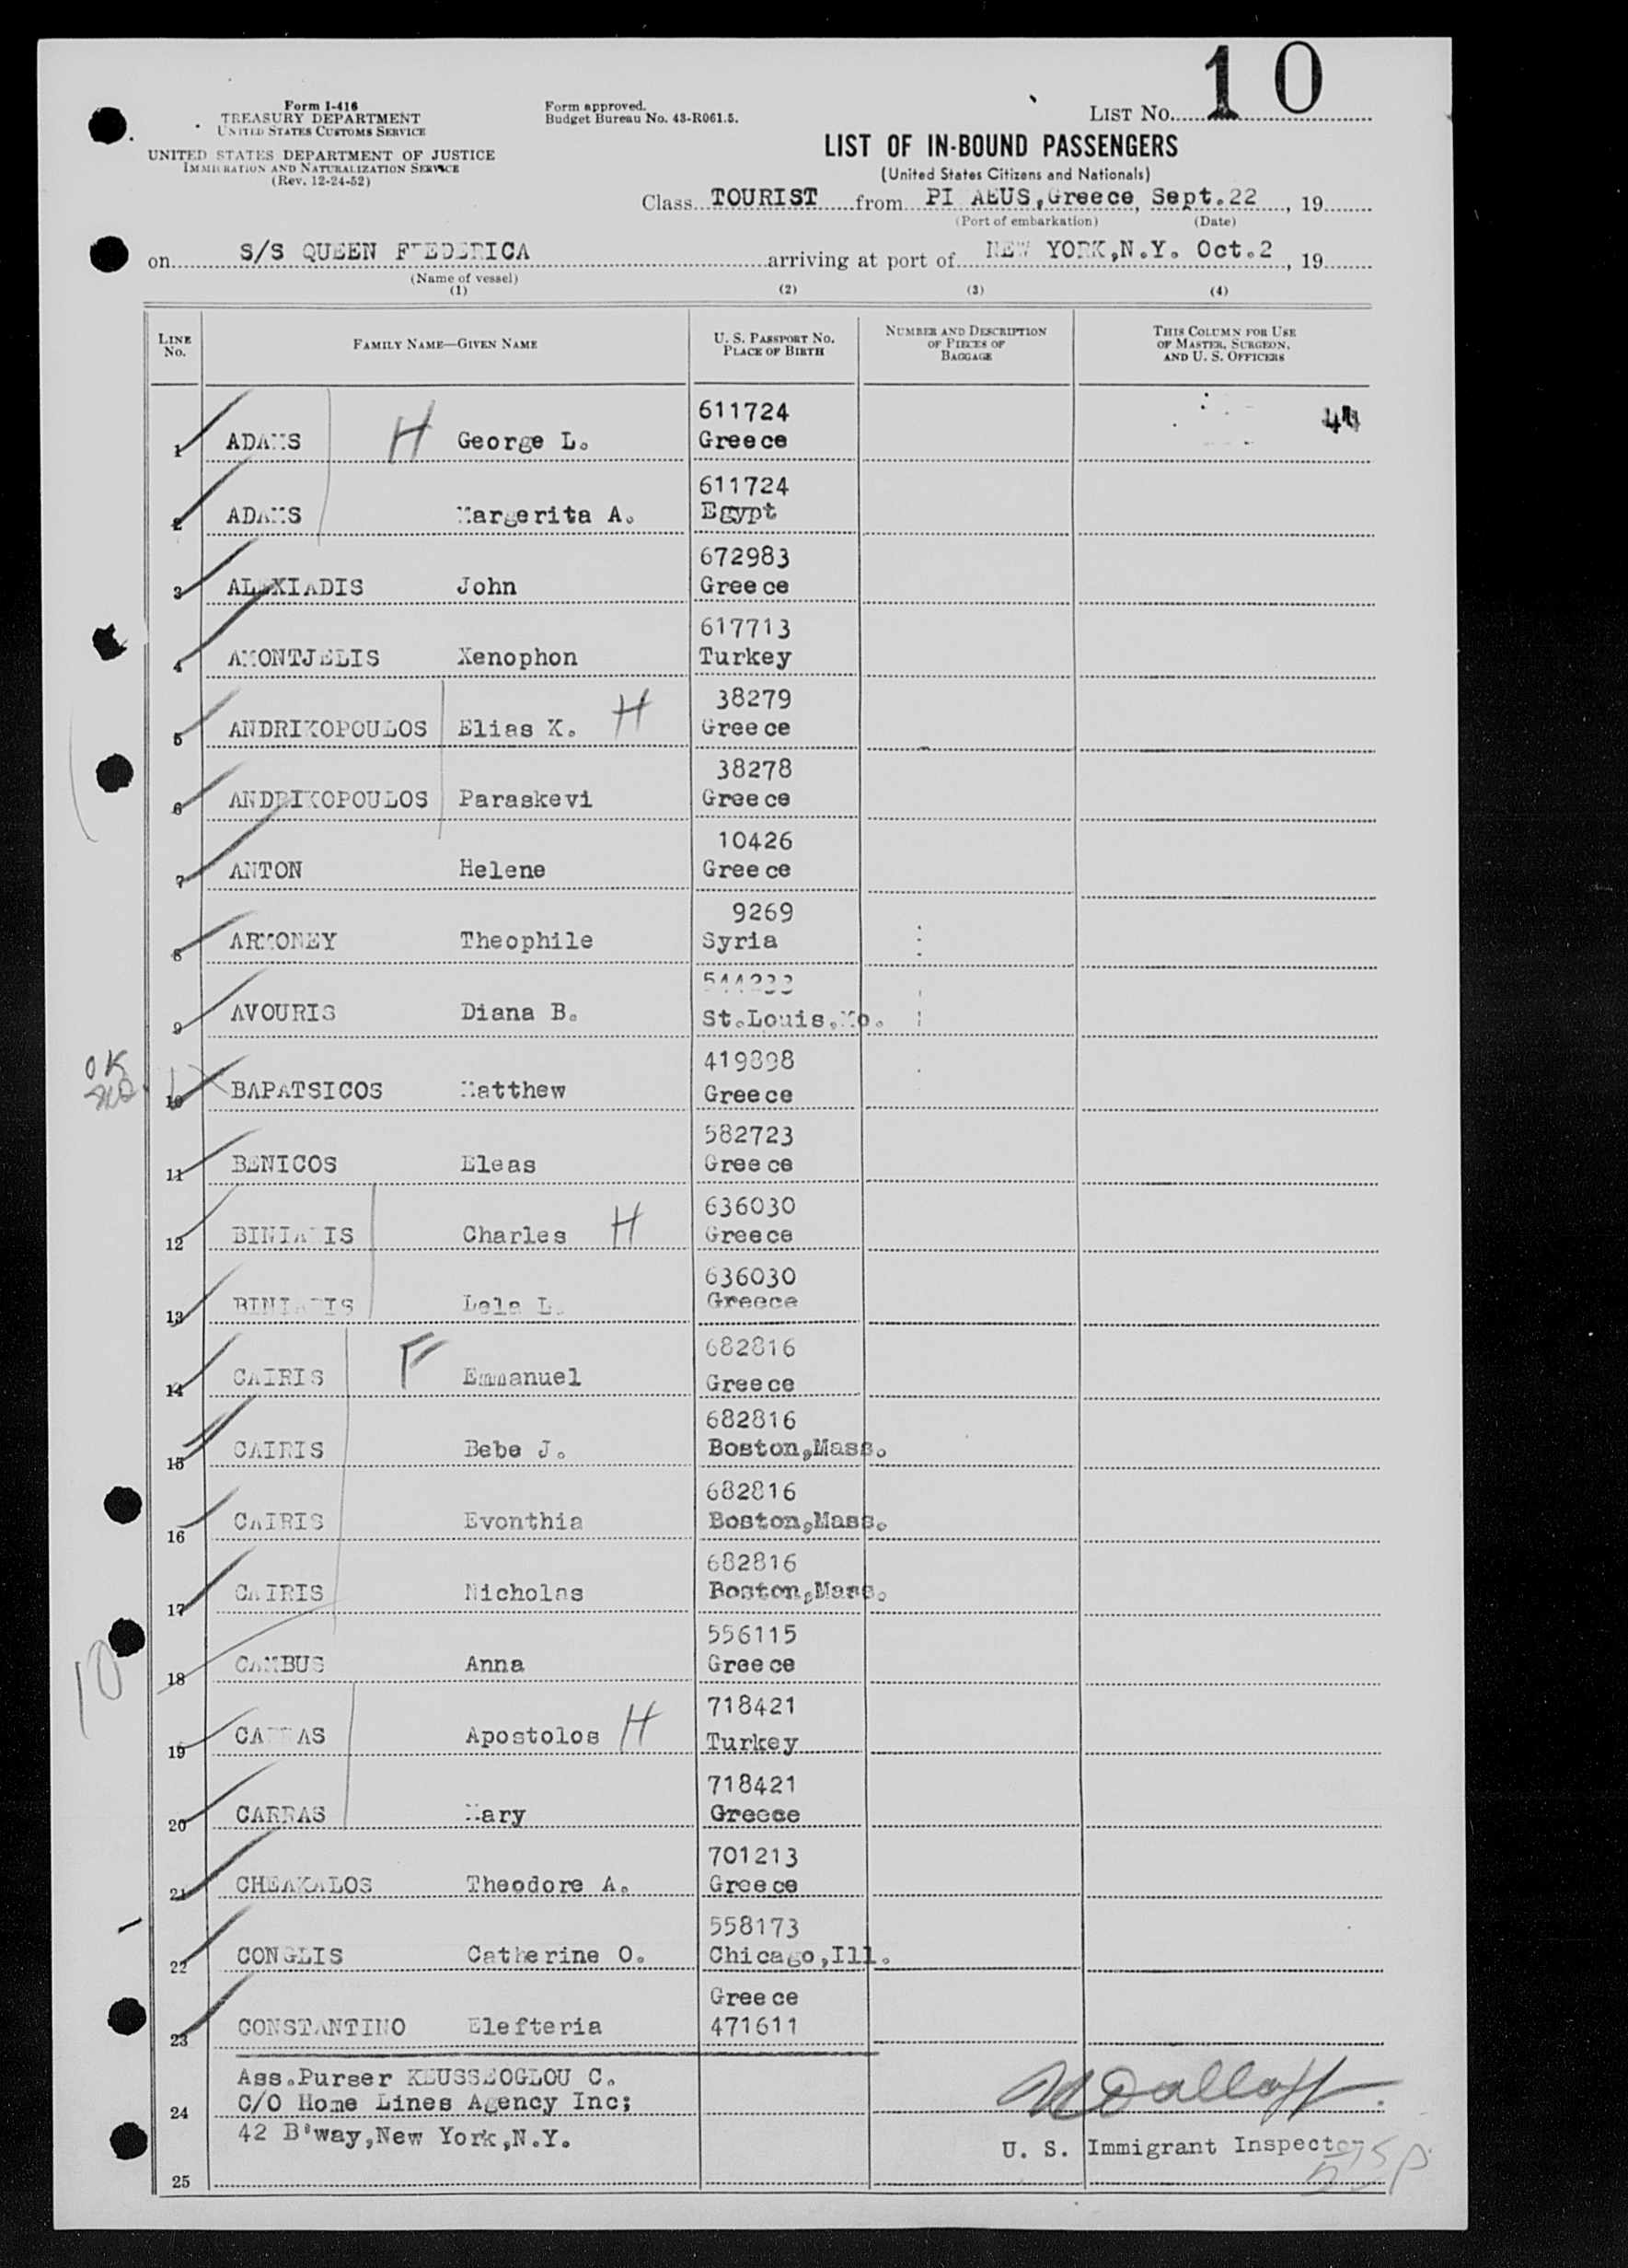 10
Form I-416
TREASURY DEPARTMENT
UNITED STATES CUSTOMS SERVICE
UNITED STATES DEPARTMENT OF JUSTICE
IMMIGRATION AND NATURALIZATION SERVICE
(Rev. 12-24-52)
Form approved.
Budget Bureau No. 43-R061.5.
LIST No.
LIST OF IN-BOUND PASSENGERS
(United States Citizens and Nationals)
Class TOURIST from PI AEUS, Greece, Sept. 22, 19
(Port of embarkation) (Date)
on S/S QUEEN FREDERICA arriving at port of NEW YORK, N.Y. Oct. 2, 19
(Name of vessel)
(1) (2) (3) (4)
LINE No. FAMILY NAME—GIVEN NAME U. S. PASSPORT No. PLACE OF BIRTH NUMBER AND DESCRIPTION OF PIECES OF BAGGAGE THIS COLUMN FOR USE OF MASTER, SURGEON, AND U. S. OFFICERS
611724
1 ADAMS H George L. Greece
611724
2 ADAMS Margerita A. Egypt
672983
3 ALEXIADIS John Greece
617713
4 AMONTJELIS Xenophon Turkey
38279
5 ANDRIKOPOULOS Elias K. H Greece
38278
6 ANDRIKOPOULOS Paraskevi Greece
10426
7 ANTON Helene Greece
9269
8 ARMONEY Theophile Syria
9 AVOURIS Diana B. St.Louis,Mo.
OK
419898
10 BAPATSICOS Matthew Greece
582723
11 BENICOS Eleas Greece
636030
12 Charles H Greece
636030
13 Lela L. Greece
682816
14 CAIRIS F Emmanuel Greece
682816
15 CAIRIS Bebe J. Boston,Mass.
682816
16 CAIRIS Evonthia Boston,Mass.
682816
17 CAIRIS Nicholas Boston,Mass.
10
556115
18 CAMBUS Anna Greece
718421
19 CARRAS Apostolos H Turkey
718421
20 CARRAS Mary Greece
701213
21 CHEAKALOS Theodore A. Greece
558173
22 CONGLIS Catherine O. Chicago,Ill.
Greece
23 CONSTANTINO Elefteria 471611
Ass.Purser KEUSSEOGLOU C.
24 C/O Home Lines Agency Inc;
42 B'way,New York,N.Y.
U. S. Immigrant Inspector
25